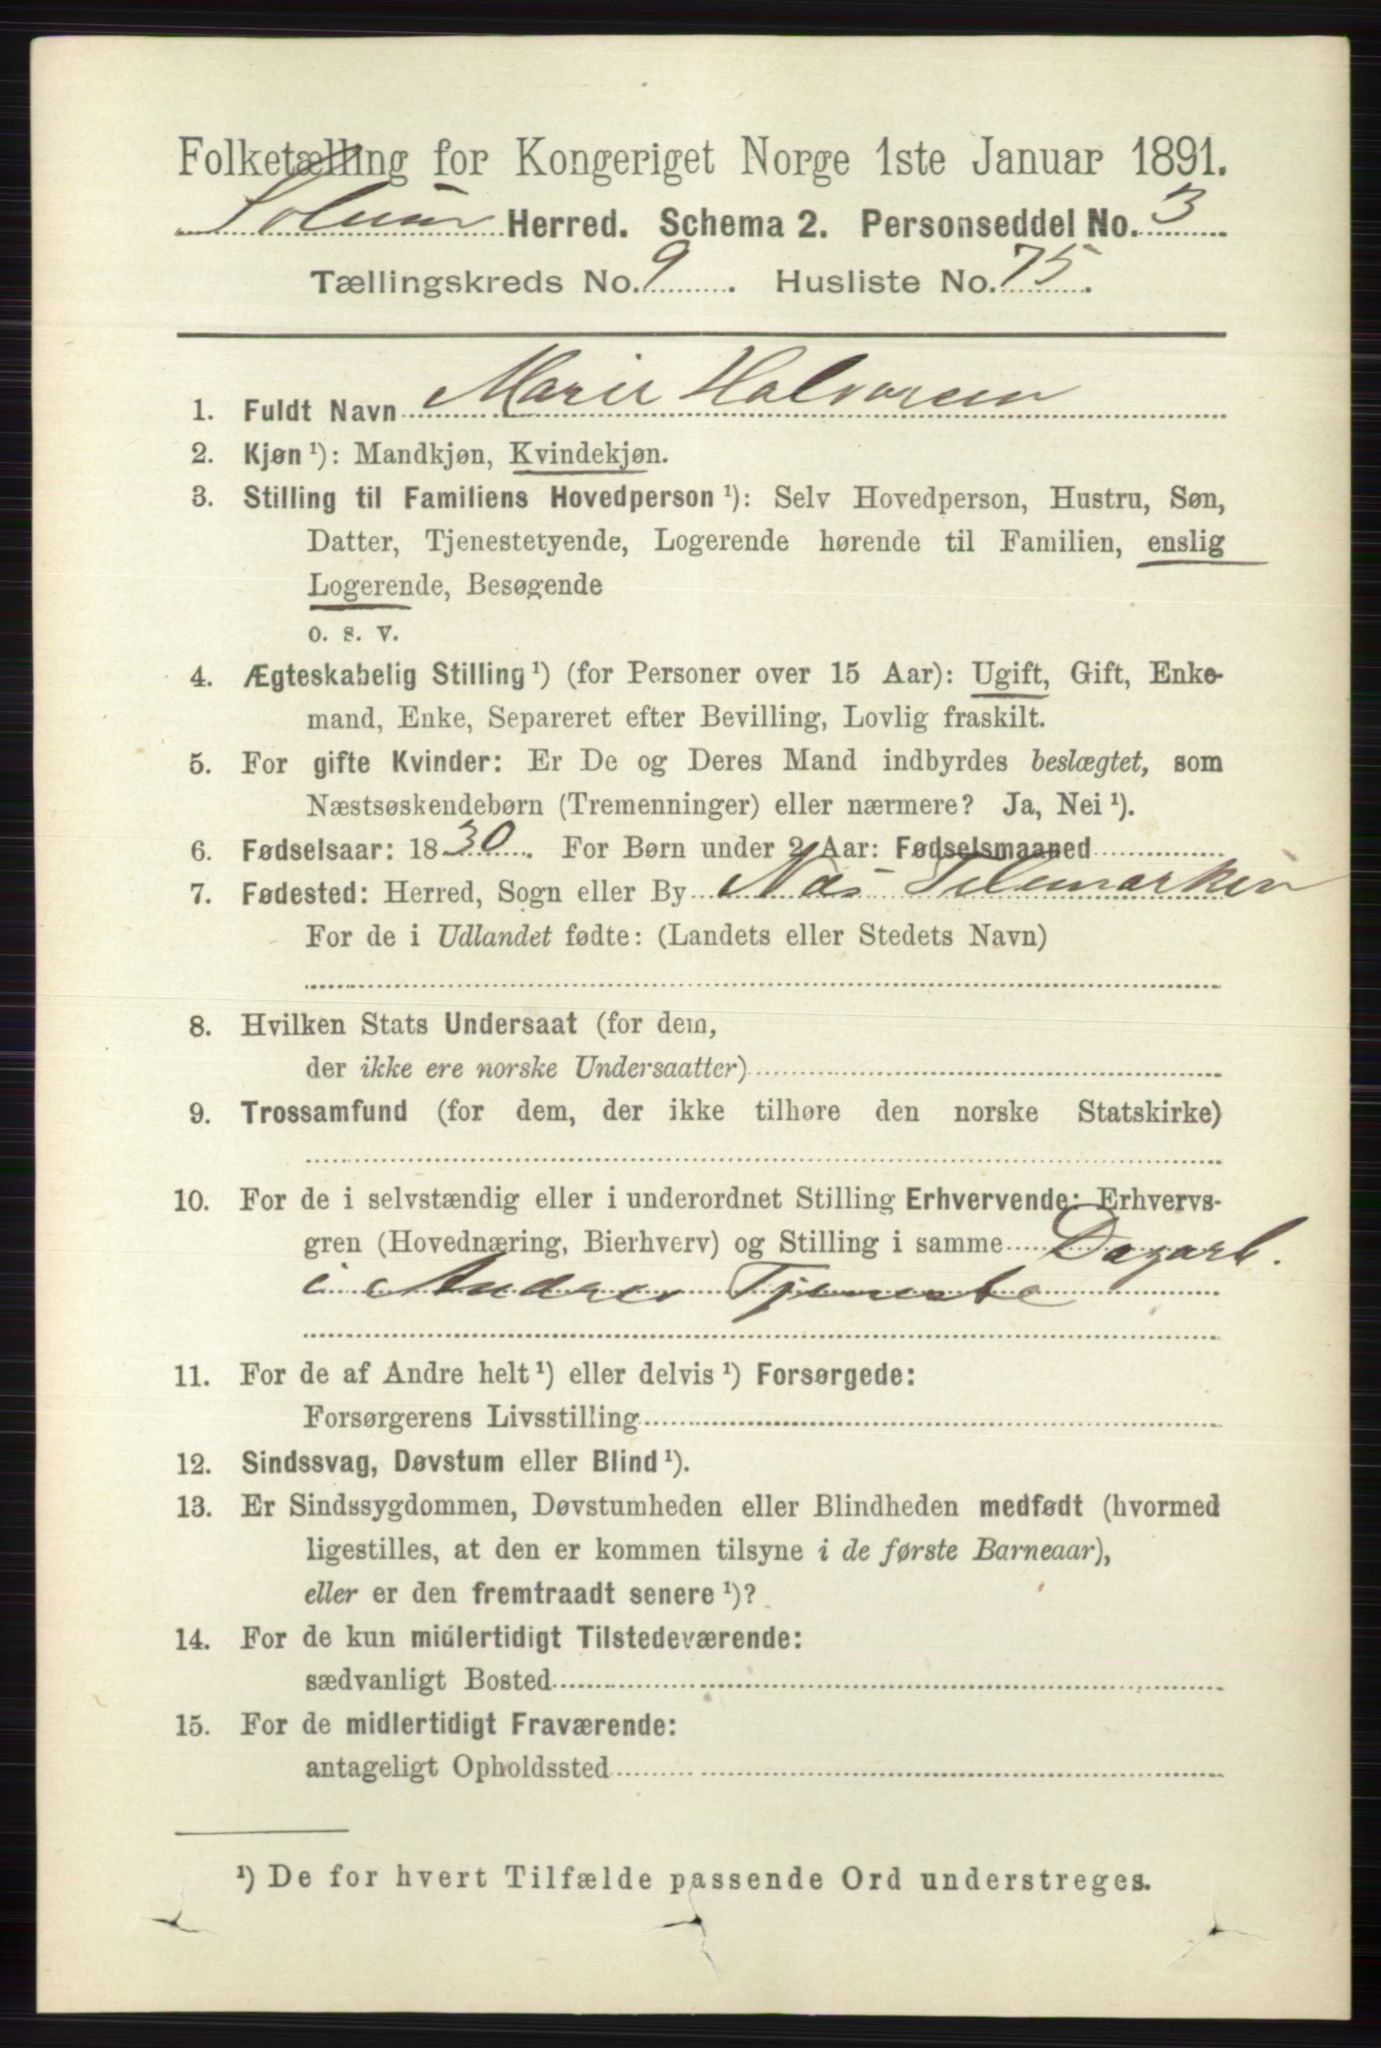 Folketælling for Kongeriget Norge 1ste Januar 1891.
Solum Herred. Schema 2. Personseddel No. 3
Tællingskreds No. 9. Husliste No. 75.
1. Fuldt Navn Marie Halvorsen
2. Kjøn ¹): Mandkjøn, Kvindekjøn.
3. Stilling til Familiens Hovedperson ¹): Selv Hovedperson, Hustru, Søn,
Datter, Tjenestetyende, Logerende hørende til Familien, enslig
Logerende, Besøgende
o. s. v.
4. Ægteskabelig Stilling ¹) (for Personer over 15 Aar): Ugift, Gift, Enke-
mand, Enke, Separeret efter Bevilling, Lovlig fraskilt.
5. For gifte Kvinder: Er De og Deres Mand indbyrdes beslægtet, som
Næstsøskendebørn (Tremenninger) eller nærmere? Ja, Nei ¹).
6. Fødselsaar: 1830. For Børn under 2 Aar: Fødselsmaaned
7. Fødested: Herred, Sogn eller By Næs Telemarken
For de i Udlandet fødte: (Landets eller Stedets Navn)
8. Hvilken Stats Undersaat (for dem,
der ikke ere norske Undersaatter)
9. Trossamfund (for dem, der ikke tilhøre den norske Statskirke)
10. For de i selvstændig eller i underordnet Stilling Erhvervende: Erhvervs-
gren (Hovednæring, Bierhverv) og Stilling i samme Dagarb.
i Andres Tjeneste
11. For de af Andre helt ¹) eller delvis ¹) Forsørgede:
Forsørgerens Livsstilling
12. Sindssvag, Døvstum eller Blind ¹).
13. Er Sindssygdommen, Døvstumheden eller Blindheden medfødt (hvormed
ligestilles, at den er kommen tilsyne i de første Barneaar),
eller er den fremtraadt senere ¹)?
14. For de kun midlertidigt Tilstedeværende:
sædvanligt Bosted
15. For de midlertidigt Fraværende:
antageligt Opholdssted
¹) De for hvert Tilfælde passende Ord understreges.